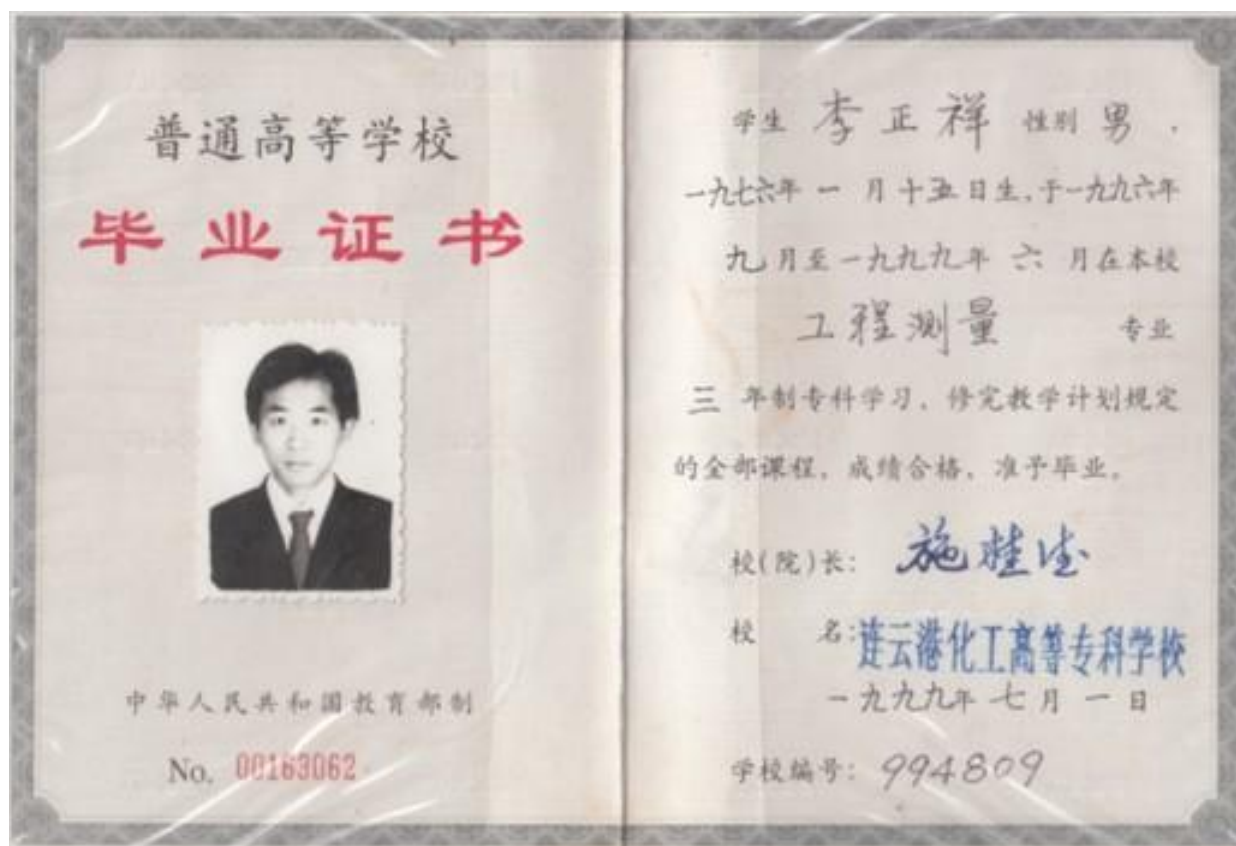 普通高等学校
毕业证书
中华人民共和国教育部制
No. 00163062
学生 李正祥 性别 男 ,
一九七六年 一 月 十五 日生,于一九九六年
九 月至一九九九年 六 月在本校
工程测量 专业
三 年制专科学习, 修完教学计划规定
的全部课程, 成绩合格, 准予毕业。
校(院)长: 施桂
校 名: 连云港化工高等专科学校
一九九九年 七 月 一 日
学校编号: 994809